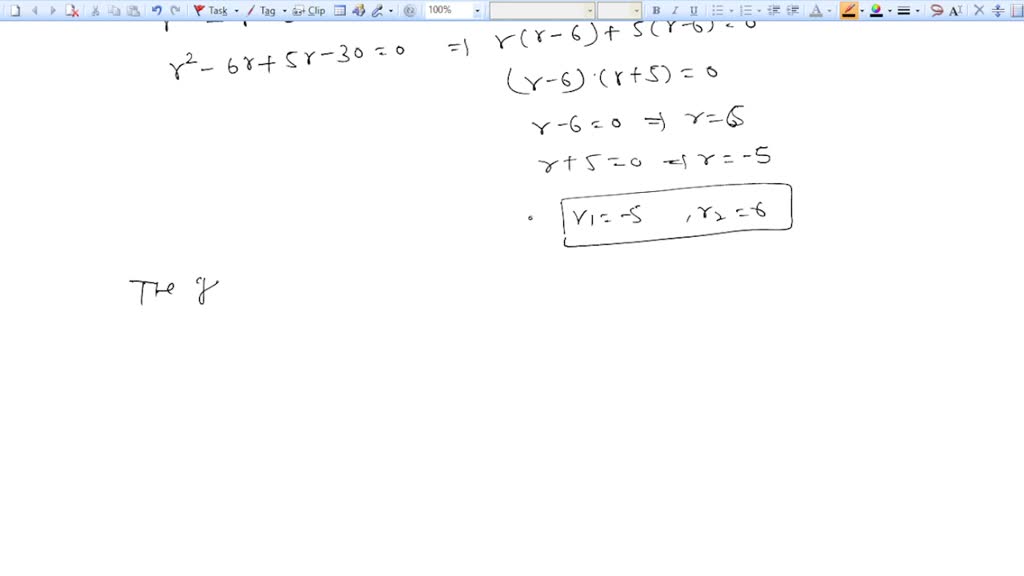 Task Tag Clip 100% B I U A A
r² - 6r + 5r - 30 = 0 => r(r-6) + 5(r-6) = 0
(r-6)·(r+5) = 0
r-6=0 => r=6
r+5=0 => r=-5
r1=-5 , r2=6
The g